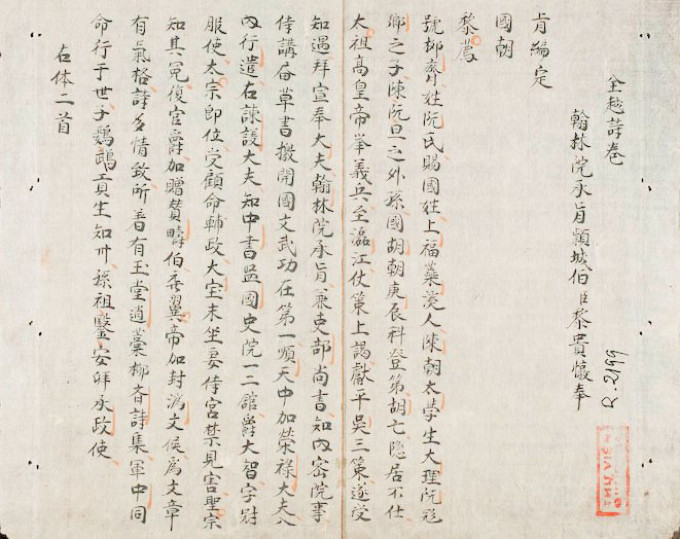 全越詩卷
翰林院承旨頴城伯臣黎貴惇奉
旨編定
國朝
黎廌
號抑齋姓阮氏賜國姓上福蘂溪人陳朝太學生大理阮飛
卿之子陳阮旦之外孫國胡朝庚辰科登第胡亡隱居不仕
太祖高皇帝挙義兵至瀘江仗策上謁獻平吳三策遂受
知遇拜宣奉大夫翰林院承旨兼吏部尚書知內密院事
侍講居草書檄開國文武功在第一順天中加榮祿大夫入
內行遣右諫議大夫知中書監國史院一二館爵大智字尉
服使太宗即位受顧命輔政大宝末坐妾侍宮禁見害聖宗
知其冤復官爵加贈賛疇伯我翼帝加封済文侯為文章
有氣格詩多情致所著有玉堂逍藁抑斉詩集軍中同
命行于世子鸚鵡真生知卅孫祖鑒安拜承政使
右体二首
R.2199